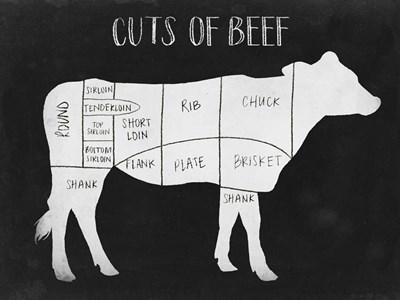 CUTS OF BEEF
ROUND
SIRLOIN
TENDERLOIN
TOP
SIRLOIN
BOTTOM
SIRLOIN
SHORT
LOIN
RIB
CHUCK
FLANK
PLATE
BRISKET
SHANK
SHANK